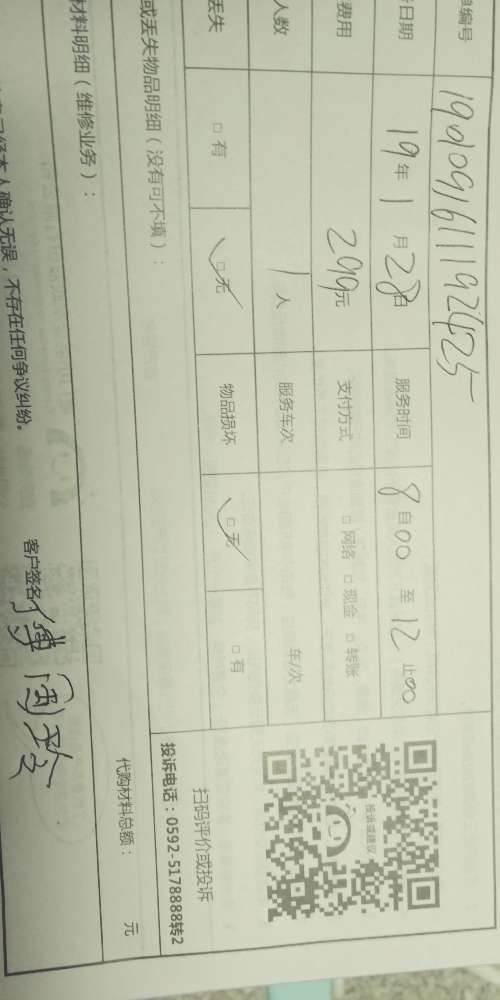 单编号 1901091611192425
日期 19年 1月 28日 服务时间 8自00 至 12止00
费用 299元 支付方式 □ 网络 □ 现金 □ 转账
人数 1人 服务车次 车/次
丢失 □ 有 □ 无 物品损坏 □ 无 □ 有
或丢失物品明细（没有可不填）：
扫码评价或投诉
投诉电话：0592-5178888转2
投诉或建议
材料明细（维修业务）：
代购材料总额： 元
本人确认无误，不存在任何争议纠纷。 客户签名